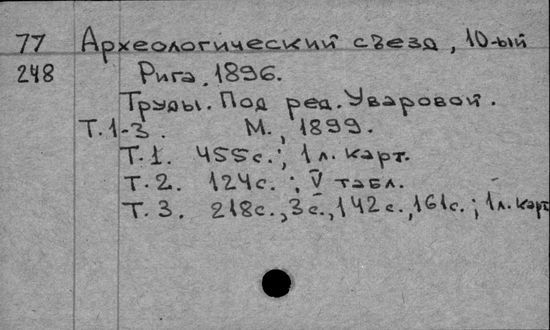 77 Археологический съезд, 10-ый
248 Рига, 1896.
Труды. Под ред. Уваровой.
Т. 1-3. М., 1899.
Т. 1. 455с.; 1 л. карт.
Т. 2. 124с.; V табл.
Т. 3. 218с., 3с., 142с., 161с.; 1 л. карт